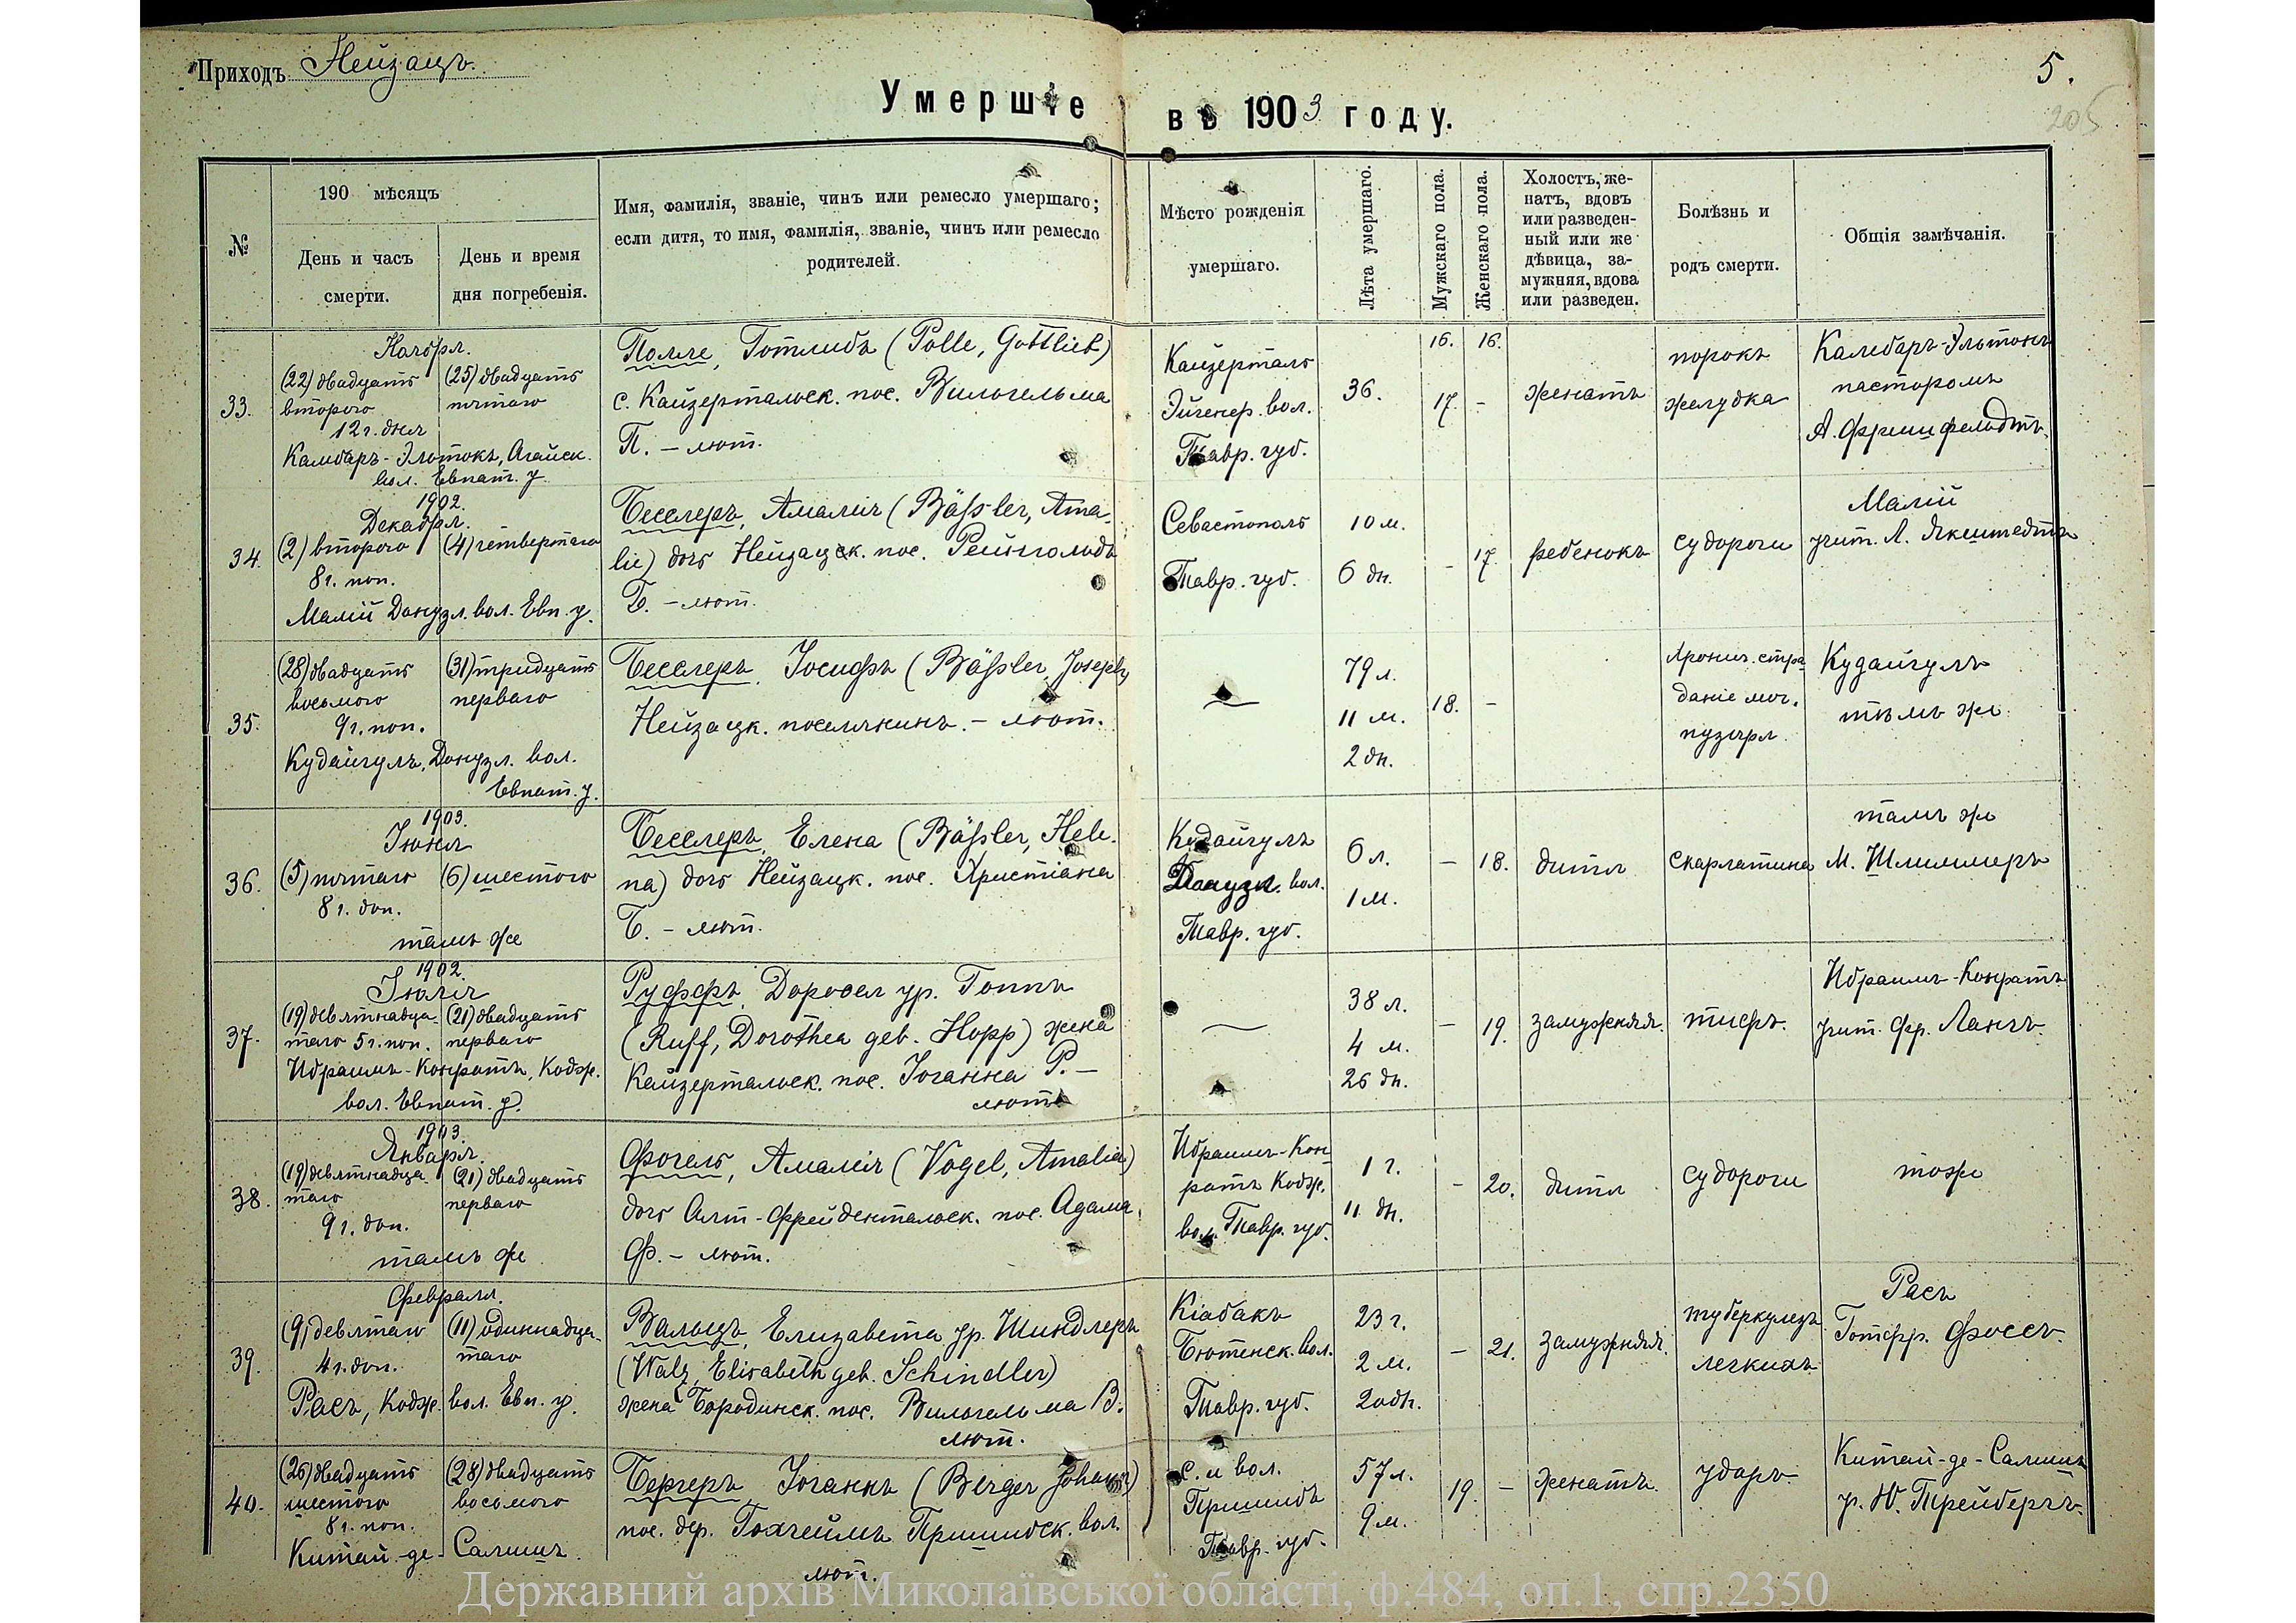 Приходъ Нейзацъ.
5.
205
Умершіе въ 1903 году.
№
190 мѣсяцъ
День и часъ смерти.
День и время дня погребенія.
Имя, фамилія, званіе, чинъ или ремесло умершаго;
если дитя, то имя, фамилія, званіе, чинъ или ремесло
родителей.
Мѣсто рожденія
умершаго.
Лѣта умершаго.
Мужскаго пола.
Женскаго пола.
Холостъ, же-
натъ, вдовъ
или разведен-
ный или же
дѣвица, за-
мужняя, вдова
или разведен.
Болѣзнь и
родъ смерти.
Общія замѣчанія.
16. 16.
33.
Ноября.
(22) двадцать
второго
12 ч. дня
(25) двадцать
пятаго
Камбаръ-Эльтокъ, Агайск.
вол. Евпат. у.
Полле, Готлибъ (Polle, Gottlieb)
с. Кайзертальск. пос. Вильгельма
П. – лют.
Кайзерталь
Эйгенер. вол.
Тавр. губ.
36.
17. -
женатъ
порокъ
желудка
Камбаръ-Эльтокъ
пасторомъ
34.
1902.
Декабря.
(2) второго
8 ч. поп.
(4) четвертаго
Малій Донузл. вол. Евп. у.
Бесслеръ, Амалія (Bäßler, Ama-
lie) дочь Нейзацск. пос. Рейнгольда
Б. – лют.
Севастополь
Тавр. губ.
10 м.
6 дн.
- 17.
ребенокъ
судороги
Малій
учит. Л. Якштедтъ
35.
(28) двадцать
восьмого
9 ч. поп.
(31) тридцать
перваго
Кудайгулъ, Донузл. вол.
Евпат. у.
Бесслеръ, Іосифъ (Bäßler, Joseph)
Нейзацк. поселянинъ. – лют.
—
79 л.
11 м.
2 дн.
18. -
Хронич. стра-
даніе моч.
пузыря
Кудайгулъ
тѣмъ же
36.
1903.
Іюня
(5) пятаго
8 ч. доп.
(6) шестого
тамъ же
Бесслеръ, Елена (Bäßler, Hele-
na) дочь Нейзацк. пос. Христіана
Б. – лют.
Кудайгулъ
Донузл. вол.
Тавр. губ.
6 л.
1 м.
- 18.
дитя
скарлатина
тамъ же
М. Шлиммеръ
37.
1902.
Іюля
(19) девятнадца-
таго 5 ч. поп.
(21) двадцать
перваго
Ибраимъ-Конратъ, Кодж.
вол. Евпат. у.
Руффъ, Доротея ур. Гоппъ
(Ruff, Dorothea geb. Hopp) жена
Кайзертальск. пос. Іоганна Р. –
лют.
—
38 л.
4 м.
26 дн.
- 19.
замужняя.
тифъ.
Ибраимъ-Конратъ
учит. Фр. Лангъ.
38.
1903.
Января.
(19) девятнадца-
таго
9 ч. доп.
(21) двадцать
перваго
тамъ же
Фогель, Амалія (Vogel, Amalia)
дочь Алт-Фрейдентальск. пос. Адама
Ф. – лют.
Ибраимъ-Кон-
ратъ Кодж.
вол. Тавр. губ.
1 г.
11 дн.
- 20.
дитя
судороги
тоже
39.
Февраля.
(9) девятаго
4 ч. доп.
(11) одиннадца-
таго
Расъ, Кодж. вол. Евп. у.
Вальцъ, Елизавета ур. Шиндлеръ
(Walz, Elisabeth geb. Schindler)
жена Бородинск. пос. Вильгельма В.
лют.
Кіабакъ
Бютенск. вол.
Тавр. губ.
23 г.
2 м.
20 дн.
- 21.
замужняя.
туберкулезъ
легкихъ
Расъ
Готфр. Фоссъ.
40.
(26) двадцать
шестого
8 ч. поп.
(28) двадцать
восьмого
Китай-де-Салишъ.
Бергеръ Іоганнъ (Berger Johann)
пос. дер. Гохгеймъ Пришибск. вол.
лют.
с. и вол.
Пришибъ
Тавр. губ.
57 л.
9 м.
19. -
женатъ.
ударъ
Китай-де-Салишъ
у. Ю. Трейбергъ.
Державний архів Миколаївської області, ф.484, оп.1, спр.2350